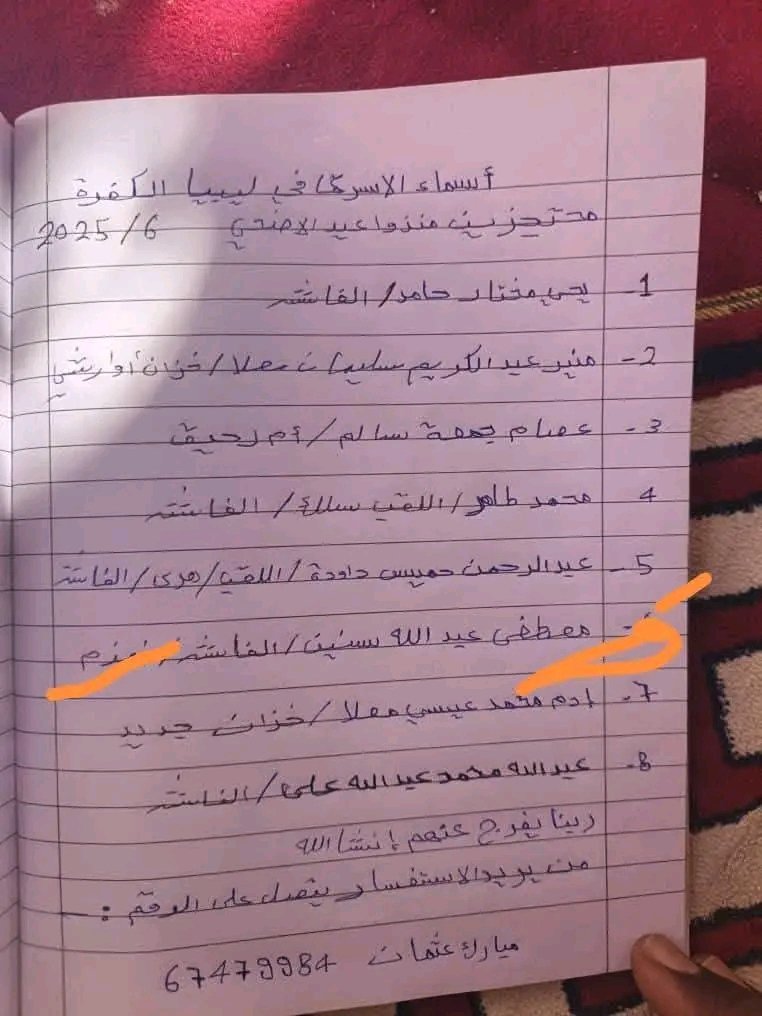 أسماء الاسرى في ليبيا الكفرة
محتجزين منذوا عيد الاضحي 6/2025
1- يحي مختار حامد/الفاشر
2- منير عبد الكريم سليمان معلا/خزان
3- عصام جمعة سالم/أم رحيق
4 محمد طاهر/اللقب سلك/الفاشر
5- عبدالرحمن خميس داودة/اللقب/هدى/الفاشر
مصطفى عبد الله سنين/الفاشر
7- ادم محمد عيسي معلا/خزان جديد
8- عبد الله محمد عبد الله على/الفاشر
ربنا يفرج عنهم إنشا الله
من يريد الاستفسار يتصل على الرقم :-
مبارك عثمان 67479984